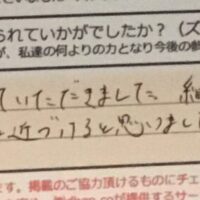 られていかがでしたか？（ズ
が、私達の何よりの力となり今後の参
ていただきました 細
近づけると思いまし
ます。掲載のご協力頂けるものにチェ
が提供するサー